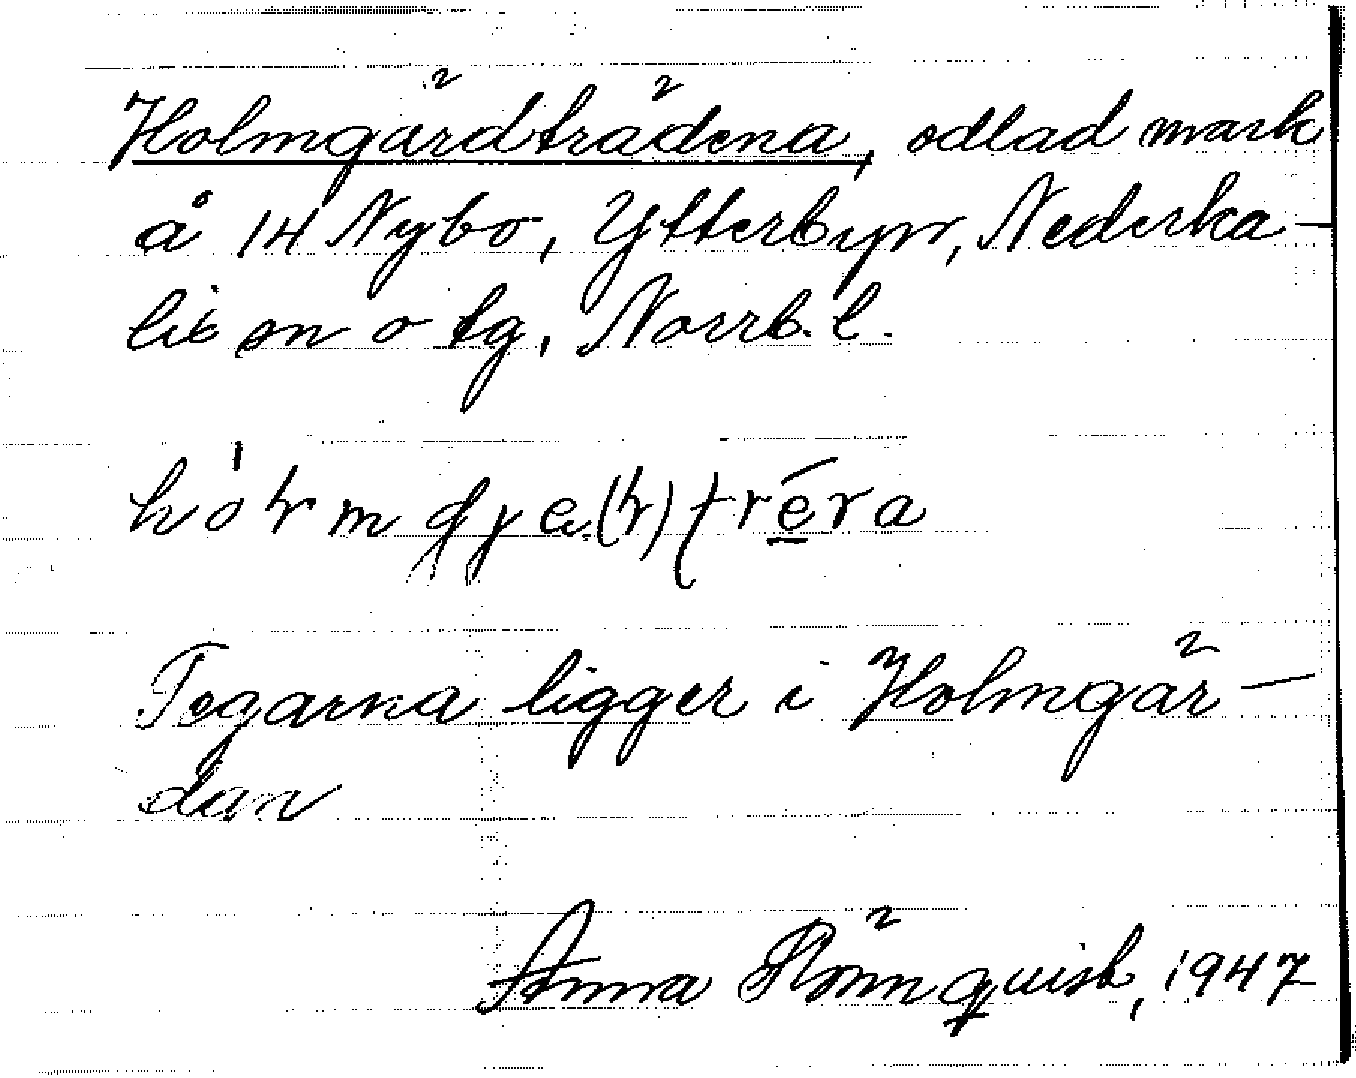 Holmgärdträdena, odlad mark
å 14 Nybo, Ytterbyn, Nederka-
lix sn o tg, Norrb. l.
Tegarna ligger i Holmgär-
dan
Anna Rönnquist, 1947